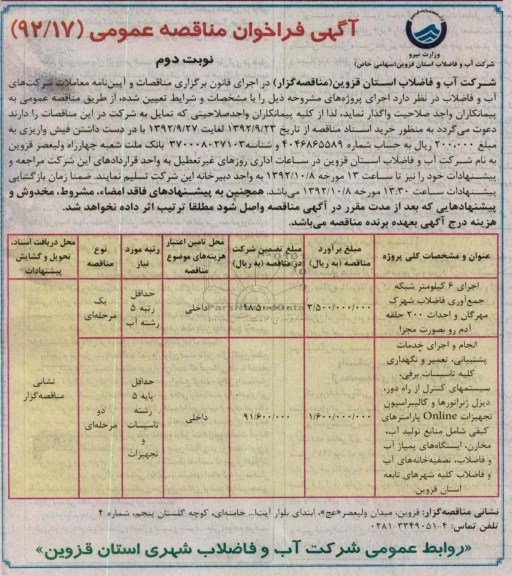 آگهی فراخوان مناقصه عمومی (۹۲/۱۷)
نوبت دوم
وزارت نیرو
شرکت آب و فاضلاب استان قزوین(سهامی خاص)
شرکت آب و فاضلاب استان قزوین(مناقصه‌گزار) در اجرای قانون برگزاری مناقصات و آیین‌نامه معاملات شرکت‌های
آب و فاضلاب در نظر دارد اجرای پروژه‌های مشروحه ذیل را با مشخصات و شرایط تعیین شده، از طریق مناقصه عمومی به
پیمانکاران واجد صلاحیت واگذار نماید، لذا از کلیه پیمانکاران واجدصلاحیتی که تمایل به شرکت در این مناقصات را دارند
دعوت می‌گردد به منظور خرید اسناد مناقصه از تاریخ ۱۳۹۲/۹/۲۳ لغایت ۱۳۹۲/۹/۲۷ با در دست داشتن فیش واریزی به
مبلغ ۲۰۰.۰۰۰ ریال به حساب شماره ۴۰۴۶۸۶۵۵۸۹ و شناسه ۳۷۰۰۰۰۸۲۷۱۰۳ بانک ملت شعبه چهارراه ولیعصر قزوین
به نام شرکت آب و فاضلاب استان قزوین در ساعات اداری روزهای غیرتعطیل به واحد قراردادهای این شرکت مراجعه و
پیشنهادات خود را نیز تا ساعت ۱۳ مورخه ۱۳۹۲/۱۰/۸ به واحد دبیرخانه این شرکت تسلیم نمایند. ضمنا زمان بازگشایی
پیشنهادات ساعت ۱۳:۳۰ مورخه ۱۳۹۲/۱۰/۸ می‌باشد. همچنین به پیشنهادهای فاقد امضاء، مشروط، مخدوش و
پیشنهادهایی که بعد از مدت مقرر در آگهی مناقصه واصل شود مطلقا ترتیب اثر داده نخواهد شد.
هزینه درج آگهی بعهده برنده مناقصه می‌باشد.
عنوان و مشخصات کلی پروژه
مبلغ برآورد مناقصه (به ریال)
مبلغ تضمین شرکت در مناقصه (به ریال)
محل تامین اعتبار هزینه‌های موضوع مناقصه
رتبه مورد نیاز
نوع مناقصه
محل دریافت اسناد، تحویل و گشایش پیشنهادات
اجرای ۶ کیلومتر شبکه
جمع‌آوری فاضلاب شهرک
مهرگان و احداث ۲۰۰ حلقه
آدم رو بصورت مجزا
۳/۵۰۰/۰۰۰/۰۰۰
داخلی
حداقل رتبه ۵ رشته آب
یک مرحله‌ای
انجام و اجرای خدمات
پشتیبانی، تعمیر و نگهداری
کلیه تاسیسات برقی،
سیستمهای کنترل از راه دور،
دیزل ژنراتورها و کالیبراسیون
تجهیزات Online پارامترهای
کیفی شامل منابع تولید آب،
مخازن، ایستگاه‌های پمپاژ آب
و فاضلاب، تصفیه‌خانه‌های آب
و فاضلاب کلیه شهرهای تابعه
استان قزوین.
۱/۶۰۰/۰۰۰/۰۰۰
۹۱/۶۰۰/۰۰۰
داخلی
حداقل پایه ۵ رشته تاسیسات و تجهیزات
دو مرحله‌ای
نشانی مناقصه‌گزار
نشانی مناقصه‌گزار: قزوین، میدان ولیعصر«عج»، ابتدای بلوار آیت‌ا... خامنه‌ای، کوچه گلستان پنجم، شماره ۴
تلفن تماس: ۴-۳۳۴۹۰۵۱-۰۲۸۱
«روابط عمومی شرکت آب و فاضلاب شهری استان قزوین»